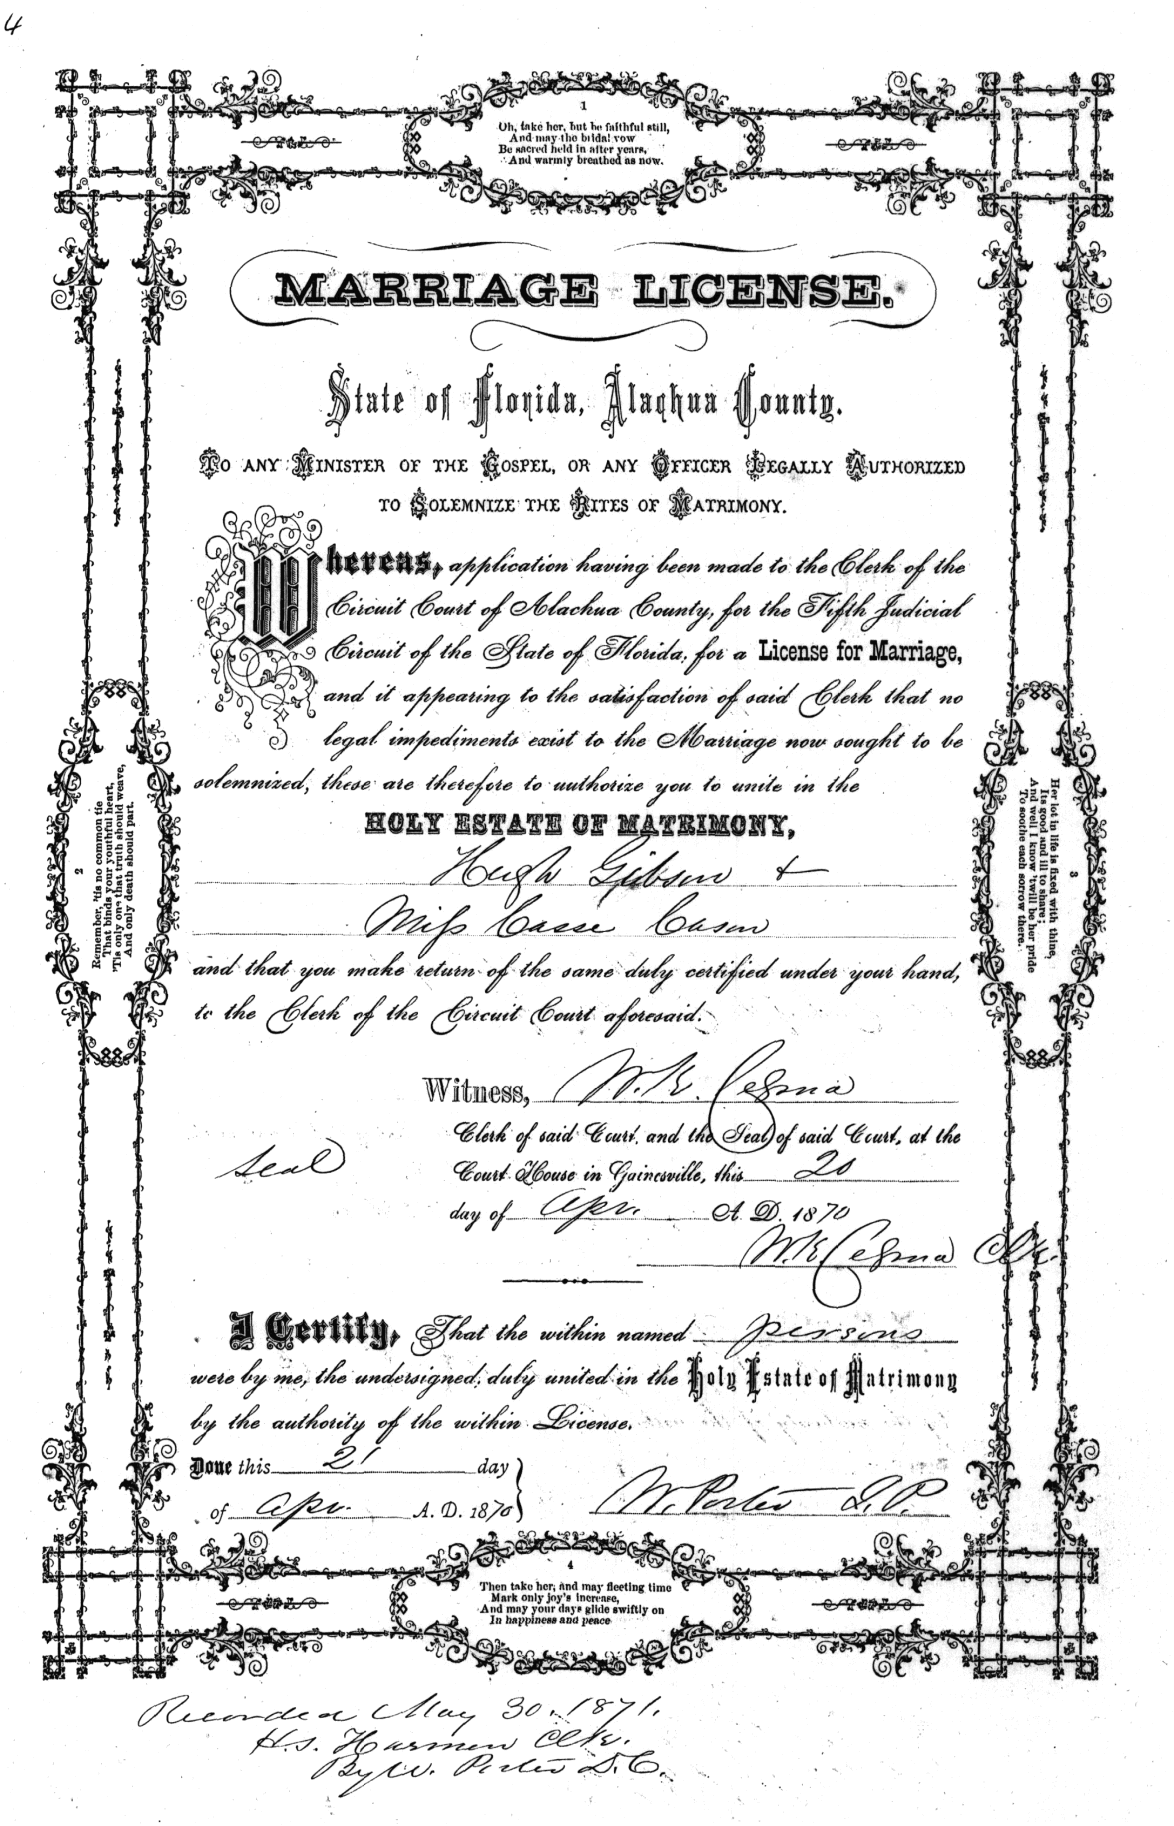 4
1
Oh, take her, but be faithful still,
And may the bridal vow
Be sacred held in after years,
And warmly breathed as now.
MARRIAGE LICENSE.
State of Florida, Alachua County.
TO ANY MINISTER OF THE GOSPEL, OR ANY OFFICER LEGALLY AUTHORIZED
TO SOLEMNIZE THE RITES OF MATRIMONY.
Whereas, application having been made to the Clerk of the
Circuit Court of Alachua County, for the Fifth Judicial
Circuit of the State of Florida, for a License for Marriage,
and it appearing to the satisfaction of said Clerk that no
legal impediments exist to the Marriage now sought to be
solemnized, these are therefore to authorize you to unite in the
HOLY ESTATE OF MATRIMONY,
Hugh Gibson &
Miss Casse Cason
and that you make return of the same duly certified under your hand,
to the Clerk of the Circuit Court aforesaid.
2
Remember, 'tis no common tie
That binds your youthful heart,
'Tis only one that truth should weave,
And only death should part.
3
Her lot in life is fixed with thine,
Its good and ill to share;
And well I know 'twill be her pride
To soothe each sorrow there.
Witness, W. K. Cessna
Clerk of said Court, and the Seal of said Court, at the
Seal
Court House in Gainesville, this 20
day of Apr. A. D. 1870
W. K. Cessna Clk.
I Certify, That the within named persons
were by me, the undersigned, duly united in the Holy Estate of Matrimony
by the authority of the within License.
Done this 21 day
of Apr. A. D. 1870
W. Porter J. P.
4
Then take her, and may fleeting time
Mark only joy's increase,
And may your days glide swiftly on
In happiness and peace
Recorded May 30. 1871.
H. S. Harmon Clk.
By W. Porter D. C.